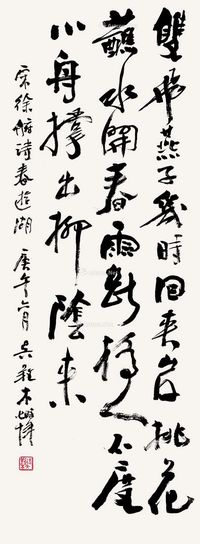 雙飛燕子幾時回夾岸桃花
蘸水開春雨斷橋人不度
小舟撐出柳陰来
宋徐俯詩春遊湖 庚午